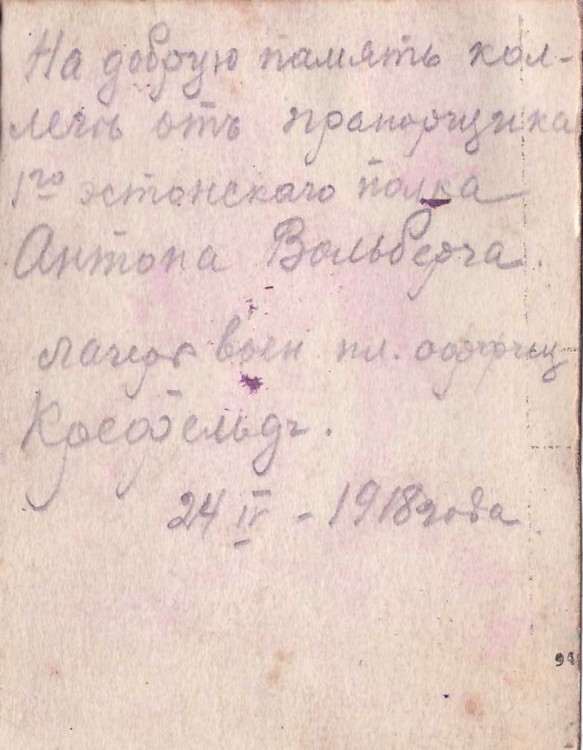 На добрую память кол-
легѣ отъ прапорщика
1го эстонскаго полка
Антона Вольберга.
лагерь воен пл. офиц
Крефельдъ.
24 IV - 1918 года
94